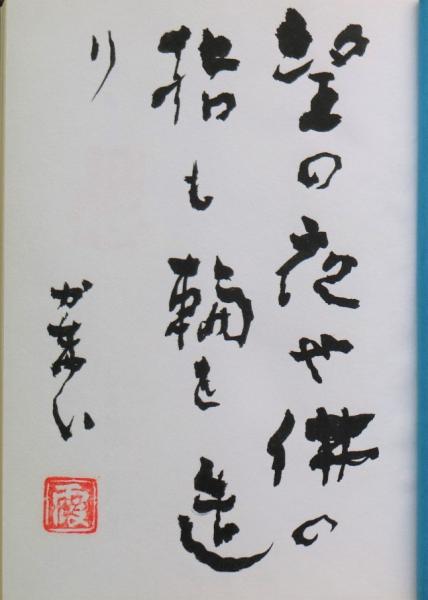 望の夜や佛の
指も輪を造
り
かまい
霞